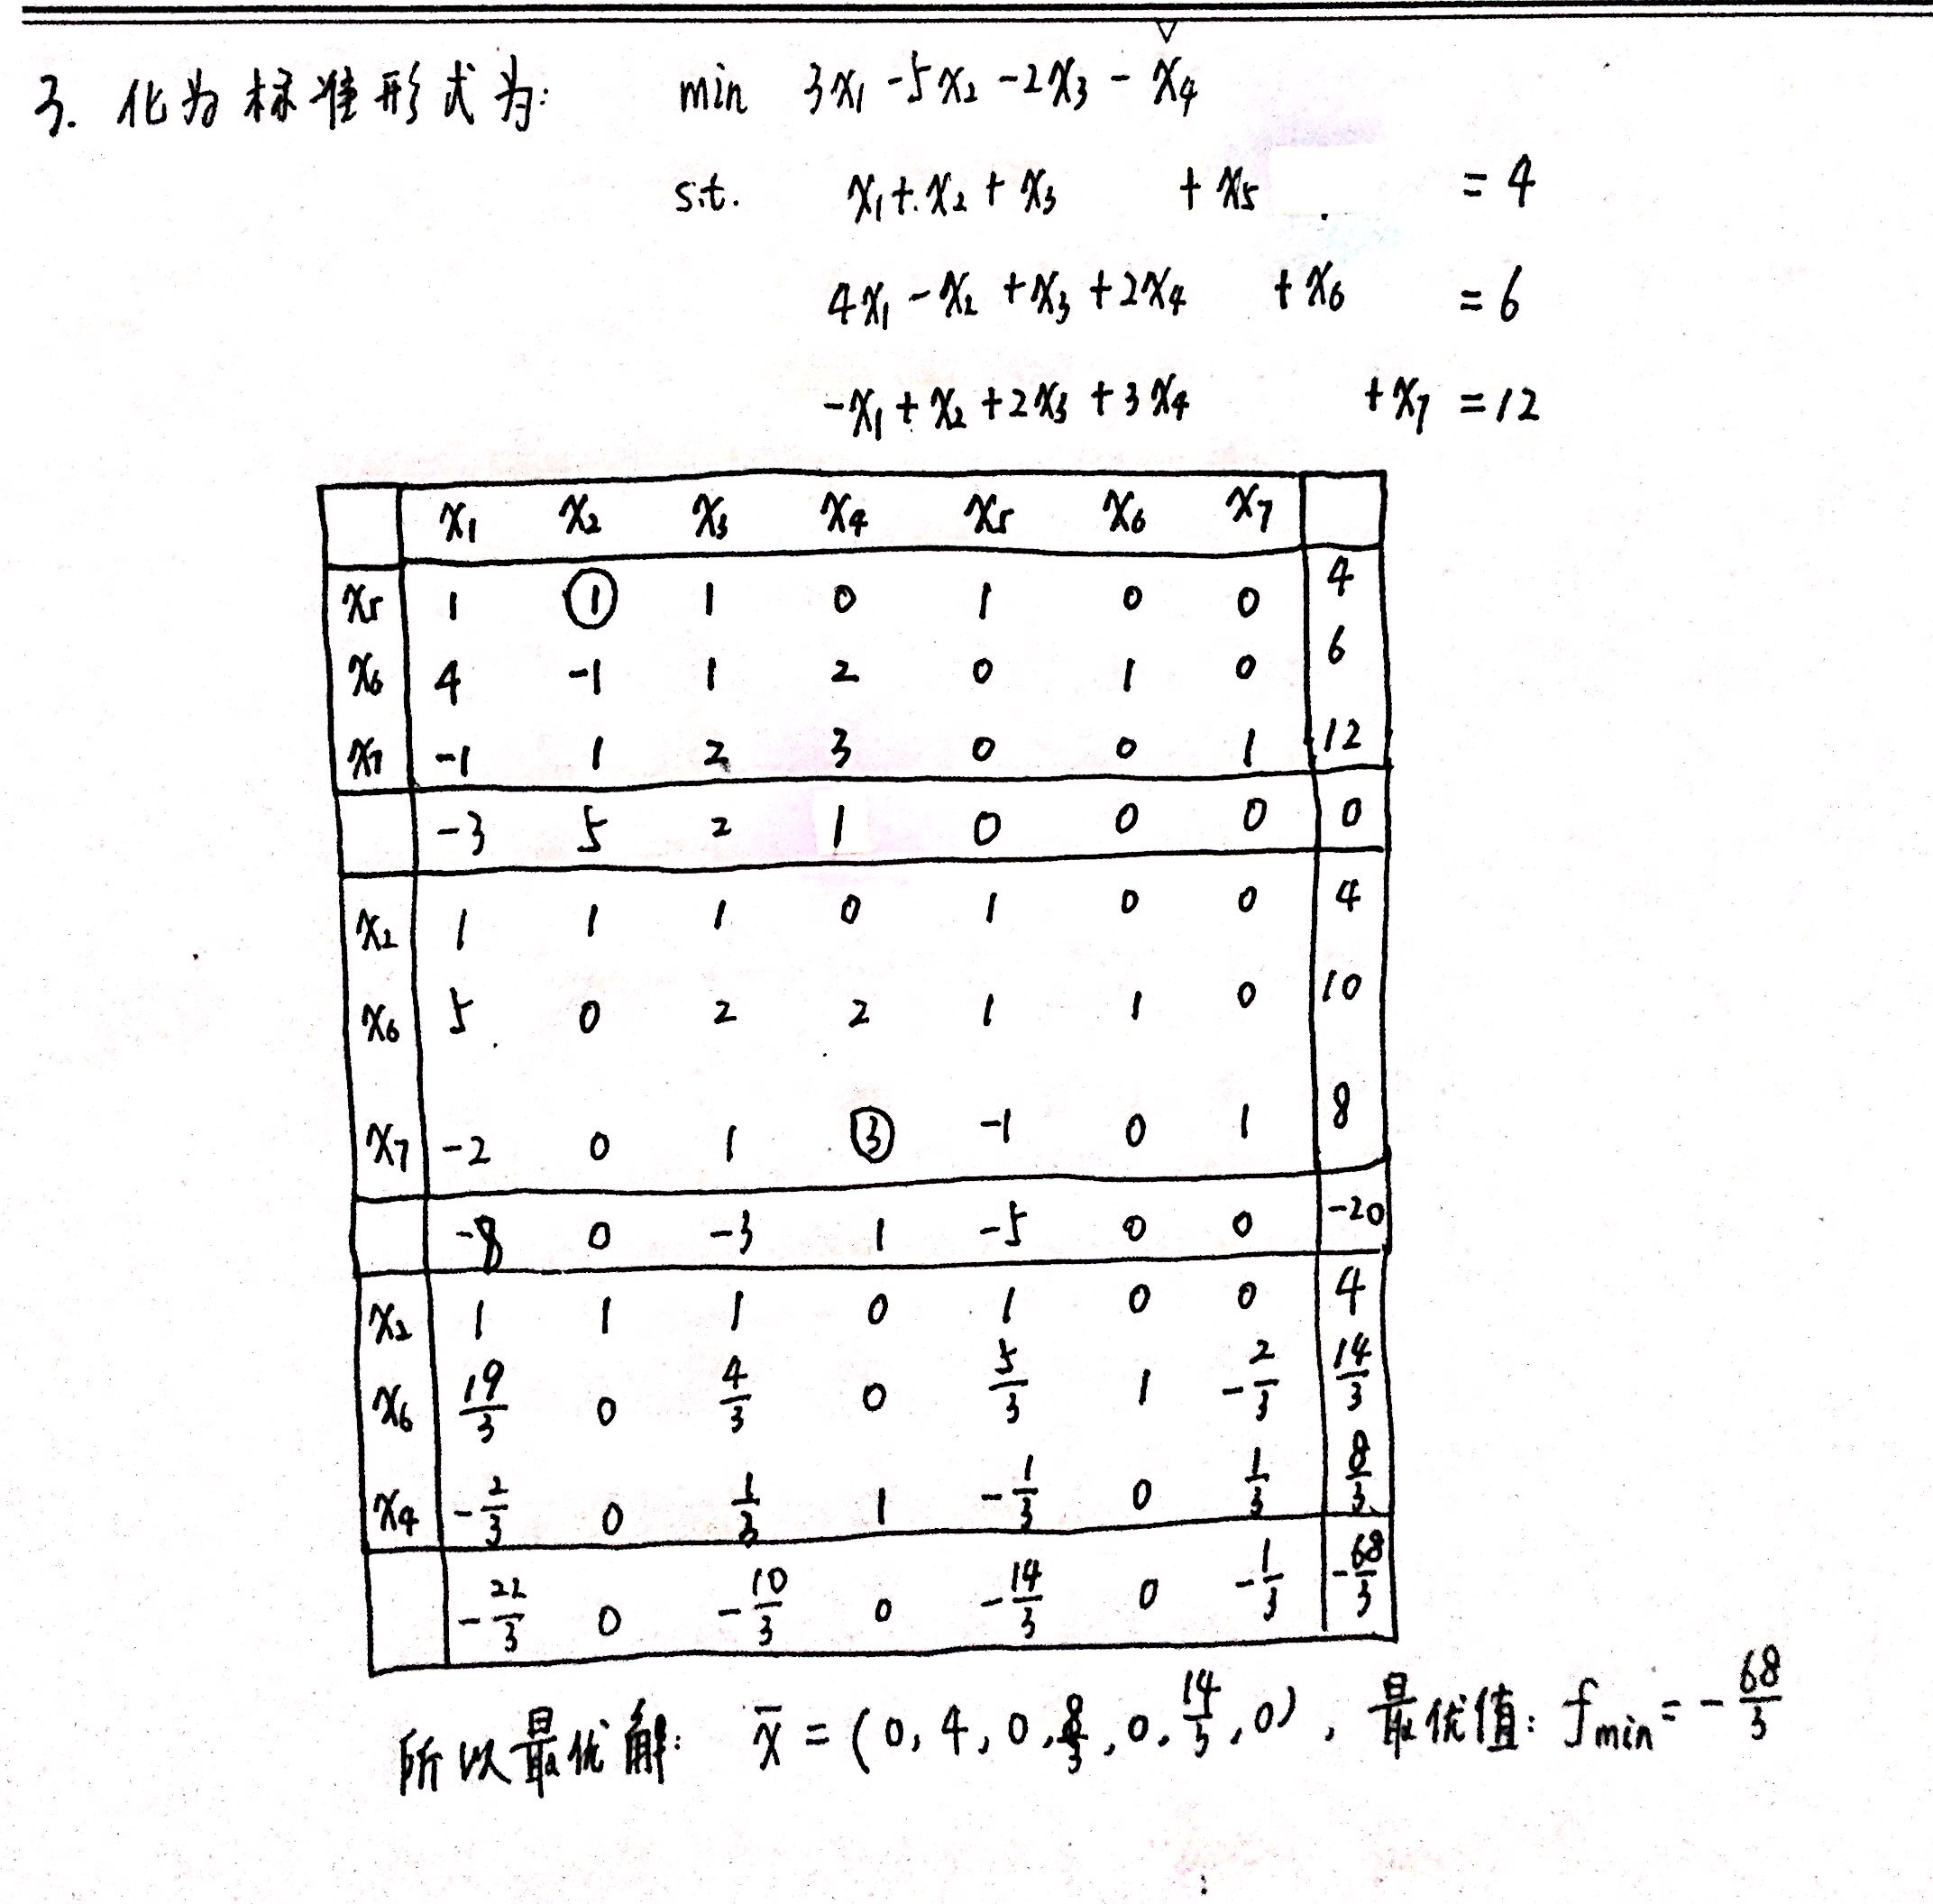 3. 化为标准形式为: min 3x₁ -5x₂ -2x₃ - x₄
s.t. x₁ + x₂ + x₃ + x₅ = 4
4x₁ - x₂ + x₃ + 2x₄ + x₆ = 6
-x₁ + x₂ + 2x₃ + 3x₄ + x₇ = 12
x₁ x₂ x₃ x₄ x₅ x₆ x₇
x₅ 1 1 1 0 1 0 0 4
x₆ 4 -1 1 2 0 1 0 6
x₇ -1 1 2 3 0 0 1 12
-3 5 2 1 0 0 0 0
x₂ 1 1 1 0 1 0 0 4
x₆ 5 0 2 2 1 1 0 10
x₇ -2 0 1 3 -1 0 1 8
-8 0 -3 1 -5 0 0 -20
x₂ 1 1 1 0 1 0 0 4
x₆ 19/3 0 4/3 0 5/3 1 -2/3 14/3
x₄ -2/3 0 1/3 1 -1/3 0 1/3 8/3
-22/3 0 -10/3 0 -14/3 0 -1/3 -68/3
所以最优解: x̄ = (0, 4, 0, 8/3, 0, 14/3, 0), 最优值: fmin = -68/3